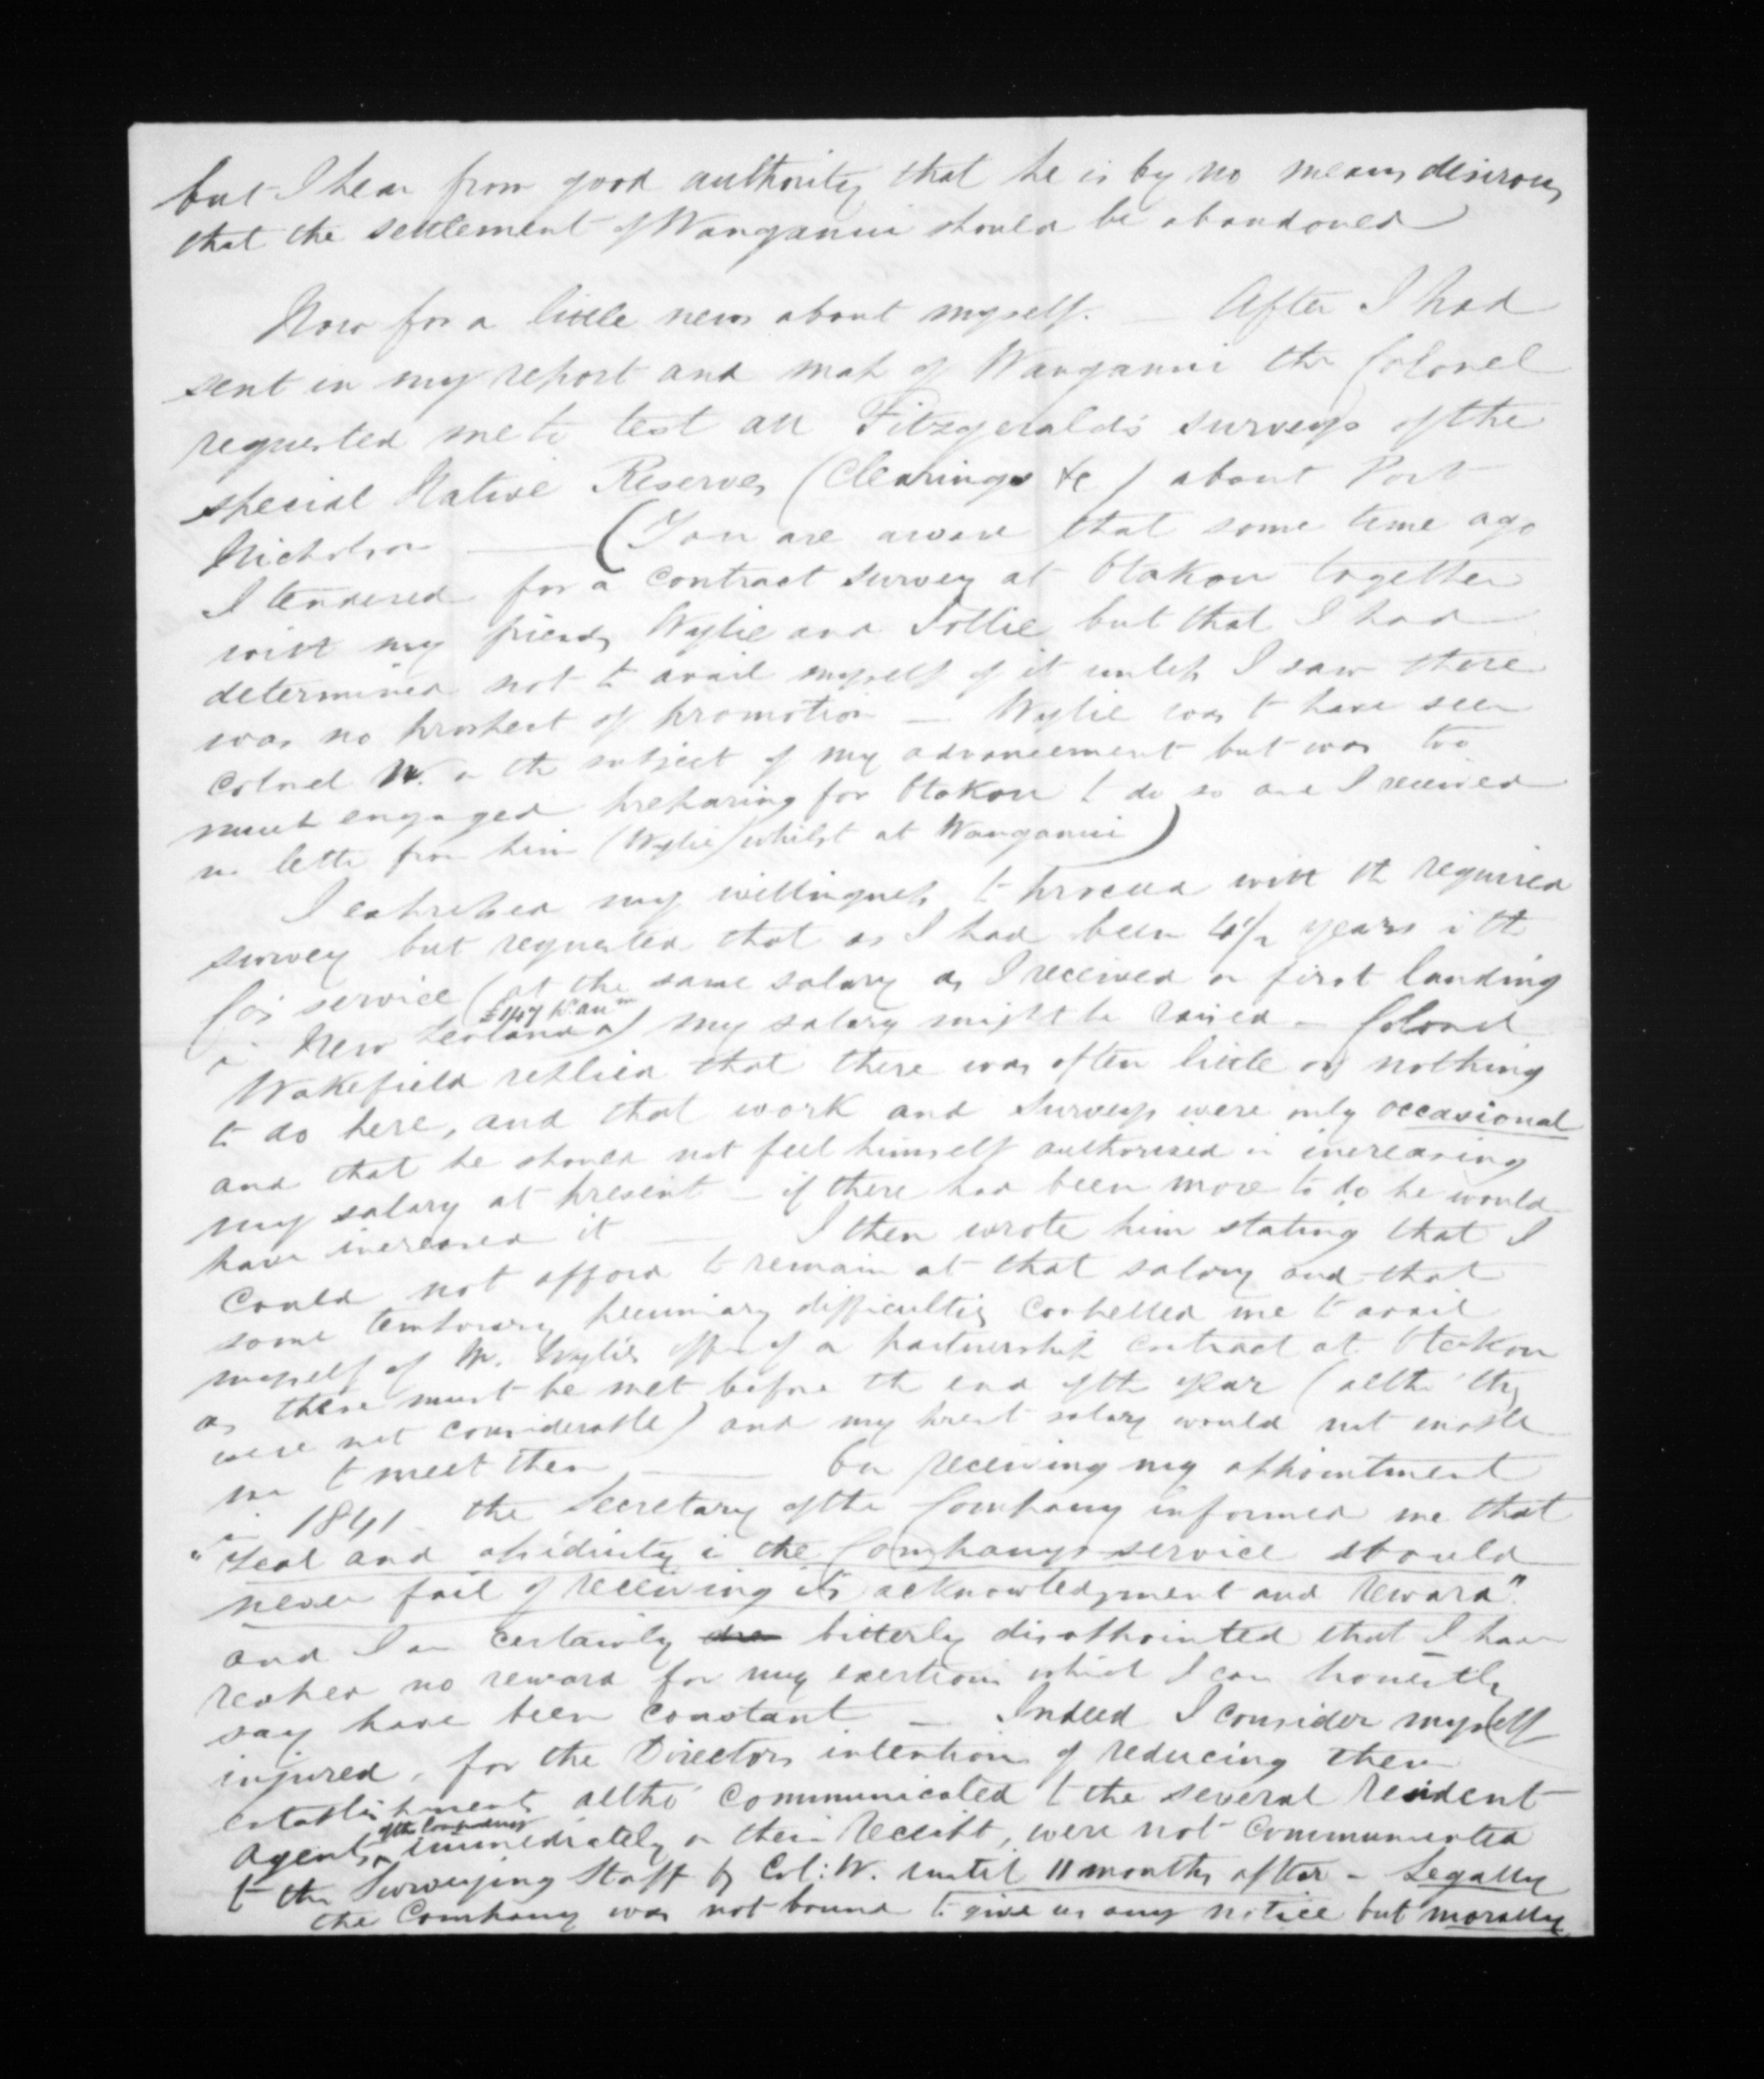 but I hear from good authority that he is by no means desirous
that the settlement of Wanganui should be abandoned
Now for a little news about myself. — After I had
sent in my report and map of Wanganui the Colonel
requested me to test all Fitzgerald's surveys of the
special Native Reserves (Clearings &c) about Port
Nicholson — (You are aware that some time ago
I tendered for a contract survey at Otakou together
with my friends Wylie and Jollie but that I had
determined not to avail myself of it unless I saw there
was no prospect of promotion — Wylie was to have seen
Colonel W. on the subject of my advancement but was too
much engaged preparing for Otakou to do so and I received
no letter from him (Wylie) whilst at Wanganui)
I expressed my willingness to proceed with the required
survey but requested that as I had been 4½ years in the
Co's service (at the same salary as I received on first landing
£147 pr. anm
in New Zealand) my salary might be raised — Colonel
Wakefield replied that there was often little or nothing
to do here, and that work and surveys were only occasional
and that he should not feel himself authorised in increasing
my salary at present — if there had been more to do he would
have increased it — I then wrote him stating that I
could not afford to remain at that salary and that
some temporary pecuniary difficulties compelled me to avail
myself of Mr. Wylie's offer of a partnership contract at Otakou
as these must be met before the end of the year (altho' they
were not considerable) and my prest salary would not enable
me to meet them — On receiving my appointment
in 1841 the Secretary of the Company informed me that
"Zeal and assiduity in the Company's service should
never fail of receiving its acknowledgment and reward"
and I am certainly bitterly disappointed that I have
reaped no reward for my exertions which I can honestly
say have been constant — Indeed I consider myself
injured, for the Directors intentions of reducing their
establishments altho' communicated to the several resident
of the Company
Agents immediately on their receipt, were not communicated
to the Surveying Staff by Col: W. until 11 months after — Legally
the Company was not bound to give us any notice but morally